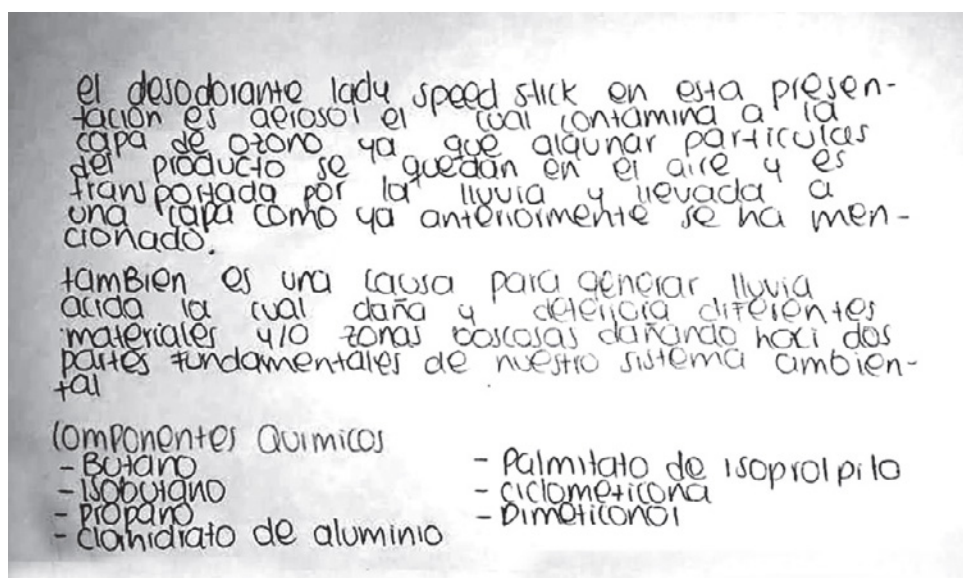 el desodorante lady speed stick en esta presen-
tación es aerosol el cual contamina a la
capa de ozono ya que algunar particulas
del producto se quedan en el aire y es
transportada por la lluvia y llevada a
una capa como ya anteriormente se ha men-
cionado.
tambien es una causa para generar lluvia
acida la cual daña y deteriora diferentes
materiales y/o zonas boscosas dañando haci dos
partes fundamentales de nuestro sistema ambien-
tal
Componentes Quimicos
- Butano
- Isobutano
- Propano
- Clorhidrato de aluminio
- Palmitato de isoprolpilo
- ciclometicona
- Dimeticonol